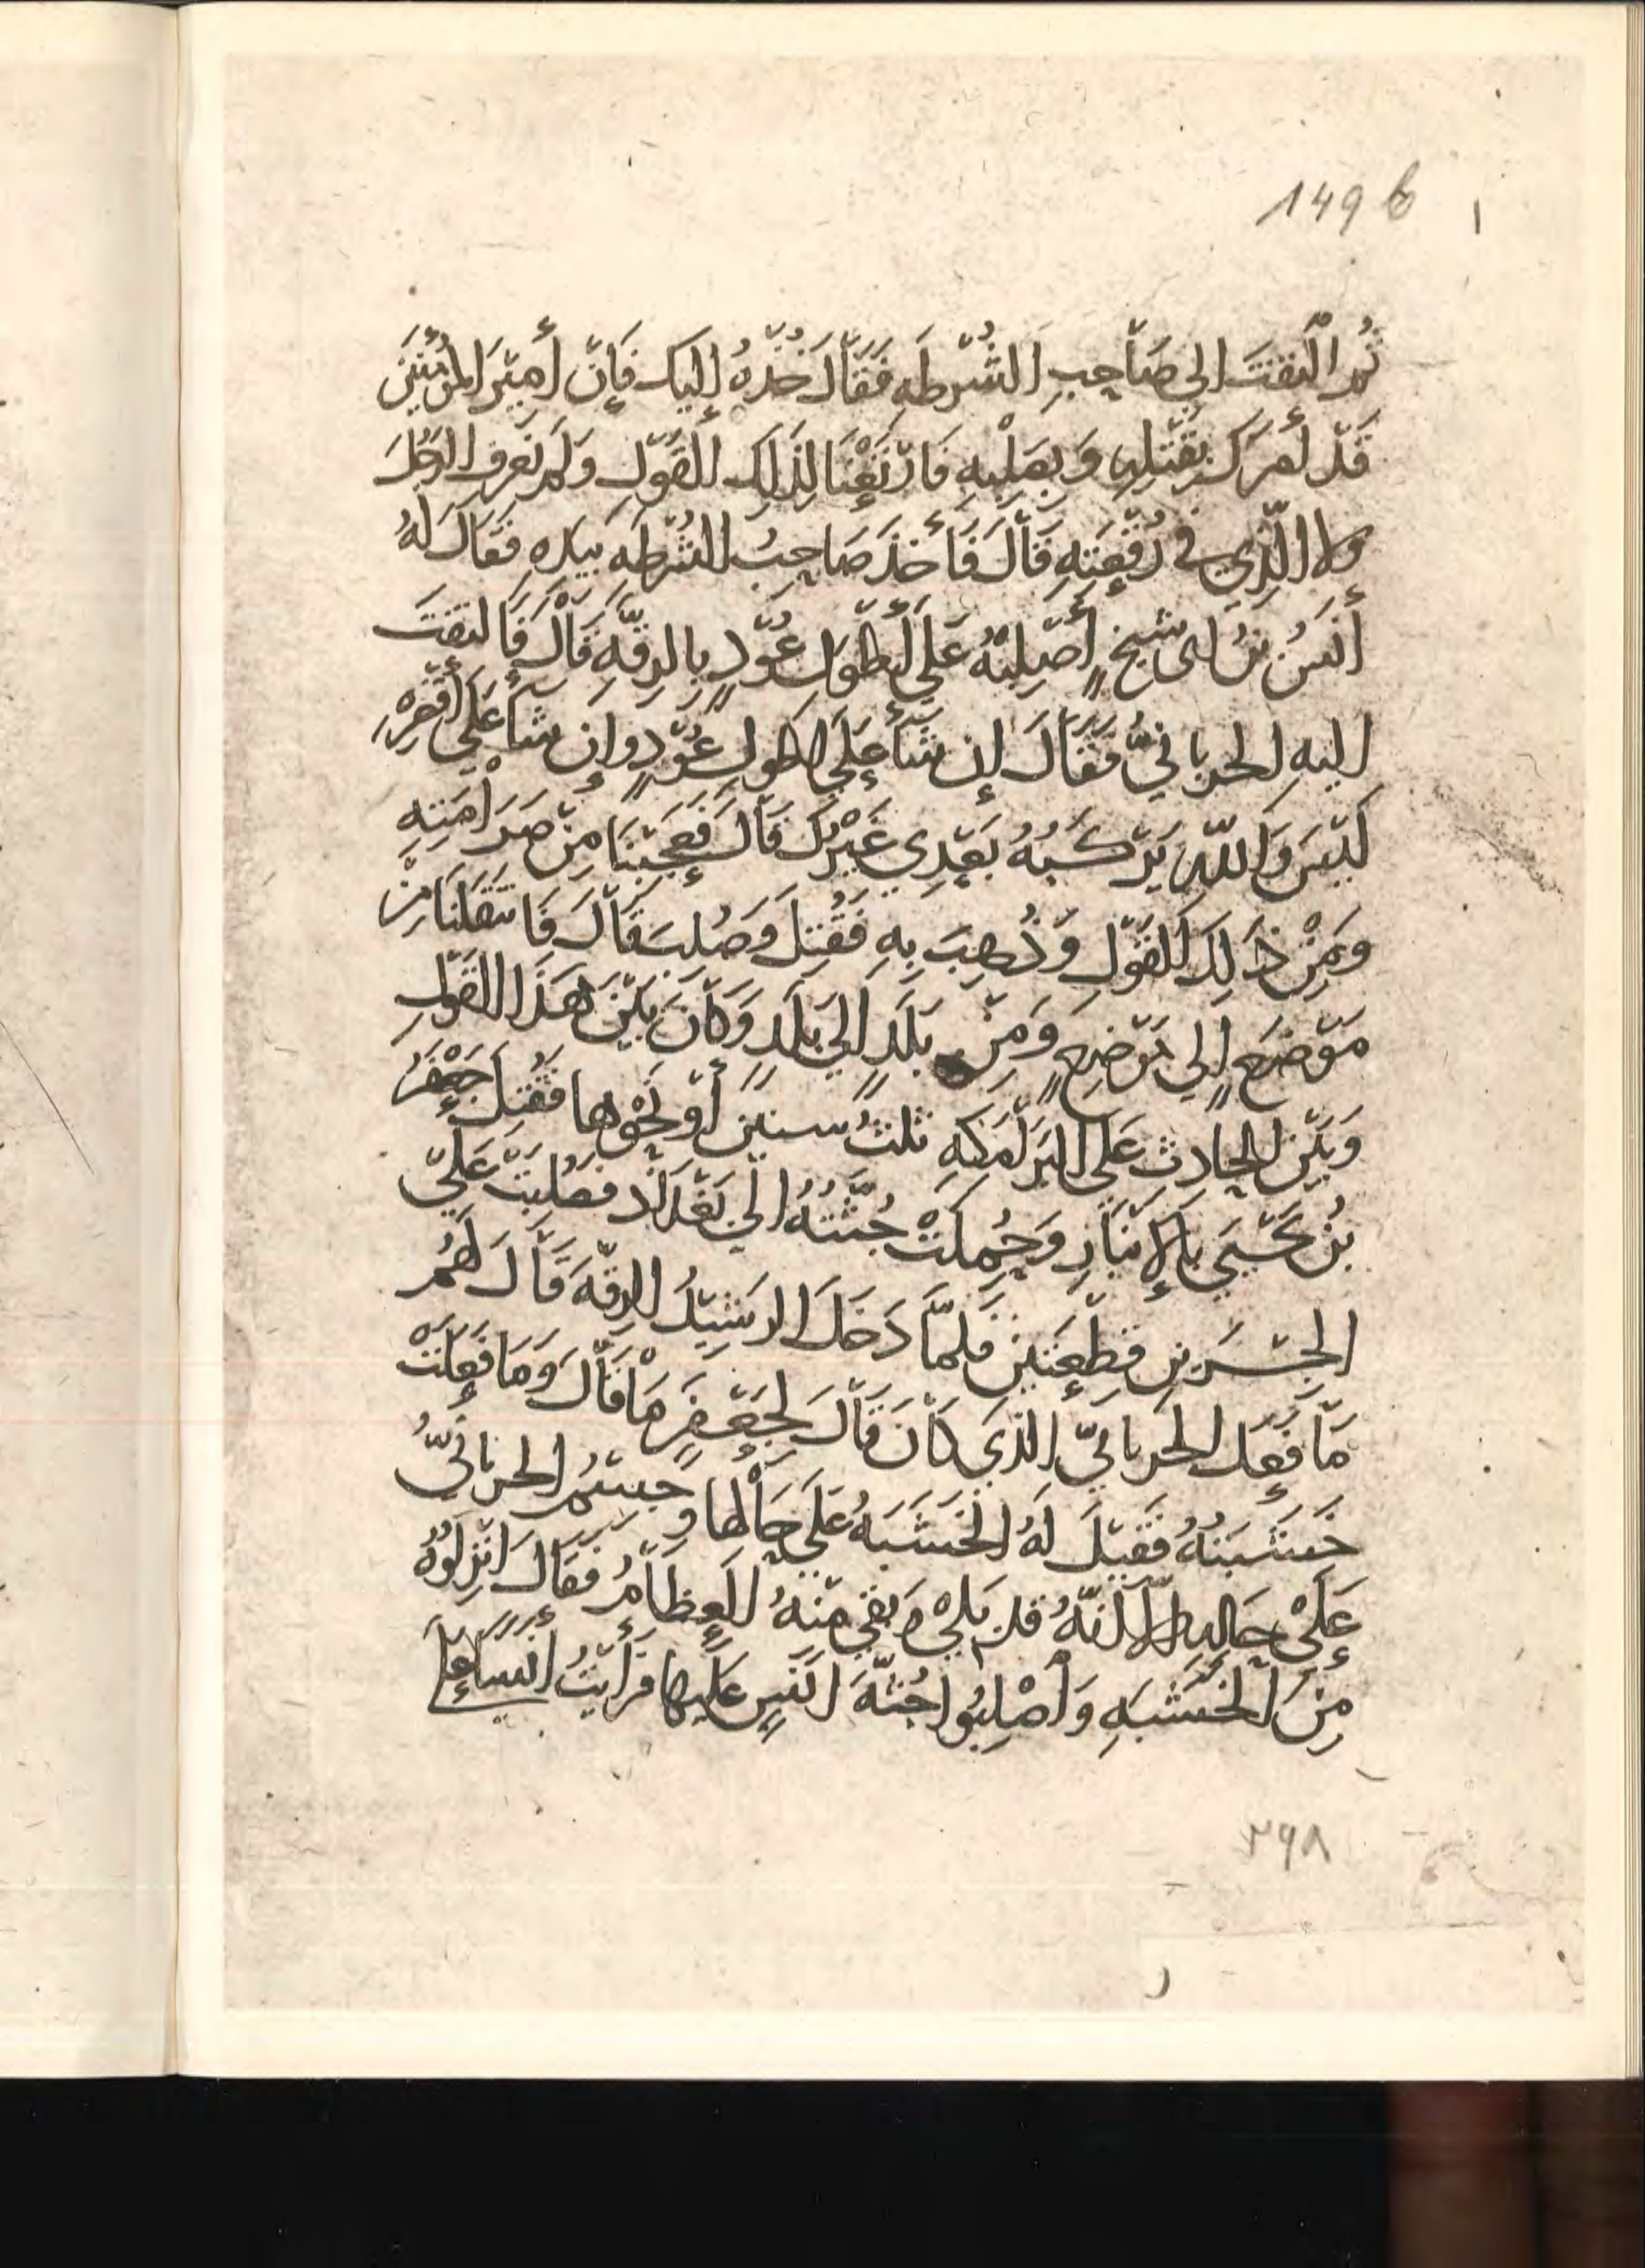 149 b
ثُمَّ الْتَفَتَ الى صَاحِبِ الشُّرْطَهِ فَقَالَ خُذْهُ إِلَيْكَ فَإِنَّ أَمِيْرَ الْمُؤْمِنِيْنَ
قَدْ أَمَرَكَ بِقَتْلِهِ وَبِصَلْبِهِ فَارْتَعْنَا لِذَلِكَ الْقَوْلِ وَلَمْ نَعْرِفِ الرَّجُلَ
ولا الَّذِي في رُقْعَتِهِ قَالَ فَأَخَذَ صَاحِبُ الشُّرْطَهِ بِيَدِهِ فَقَالَ لَهُ
أَنَسُ بْنُ ابى شيخٍ أَصْلِبُهُ عَلَى أَطْوَلِ عُوْدٍ بِالرِقَّهِ قَالَ فَالتَفَتَ
اليهِ الحربانيُّ فَقَالَ إِن شَأَ عَلَى اطولِ عُوْدٍ وإِن شَأَ عَلَى أَقْصَرِهِ
لَيْسَ وَاللَّهِ يَرْكَبُهُ بَعْدِي غَيْرُكَ قَالَ فَعَجِبْنَا مِنْ صَرَامَتِهِ
وَمِنْ ذَلِكَ الْقَوْلِ وَذُهِبَ بِهِ فَقُتِلَ وَصُلِبَ قَالَ فَانْتَقَلْنَا مِنْ
مَوْضِعٍ إِلى مَوْضِعٍ وَمِنْ بَلَدٍ الَى بَلَدٍ وَكَانَ بَيْنَ هَذَا الْقَوْلِ
وَبَيْنَ الْحَادِثِ عَلَى الْبَرَامِكَهِ ثلثُ سنينَ أَوْ نَحْوِها فَقُتِلَ جَعْفَرُ
بْنُ يَحْيَى بِالإِنْبَارِ وَحُمِلَتْ جُثَّتُهُ الَى بَغْدَاد فَصُلِبَتْ عَلَى
الجِسْرَيْنِ قِطْعَتَيْنِ فَلَمَّا دَخَلَ الرَشِيْدُ الرِقَّهَ قَالَ لَهُمْ
مَا فَعَلَ الحربانيّ الَّذِي كَانَ قَالَ لِجَعْفَرٍ مَا قَالَ وَمَا فَعَلَتْ
خَشَبَتُهُ فَقِيْلَ لَهُ الْخَشَبَهُ عَلَى حَالِها وَجِسْمُ الحربانيُّ
عَلَى حَالِهِ إِلاَّ انَّهُ قد بَلِيْ وَبَقِيَ مِنْهُ الْعِظَامُ فَقَالَ انْزِلُوْهُ
مِنَ الْخَشَبَهِ وَاصْلِبُوا جُثَّهَ انَسٍ عَلَيها فرَأَيْتُ انَسًا عَلَى
٣٩٨